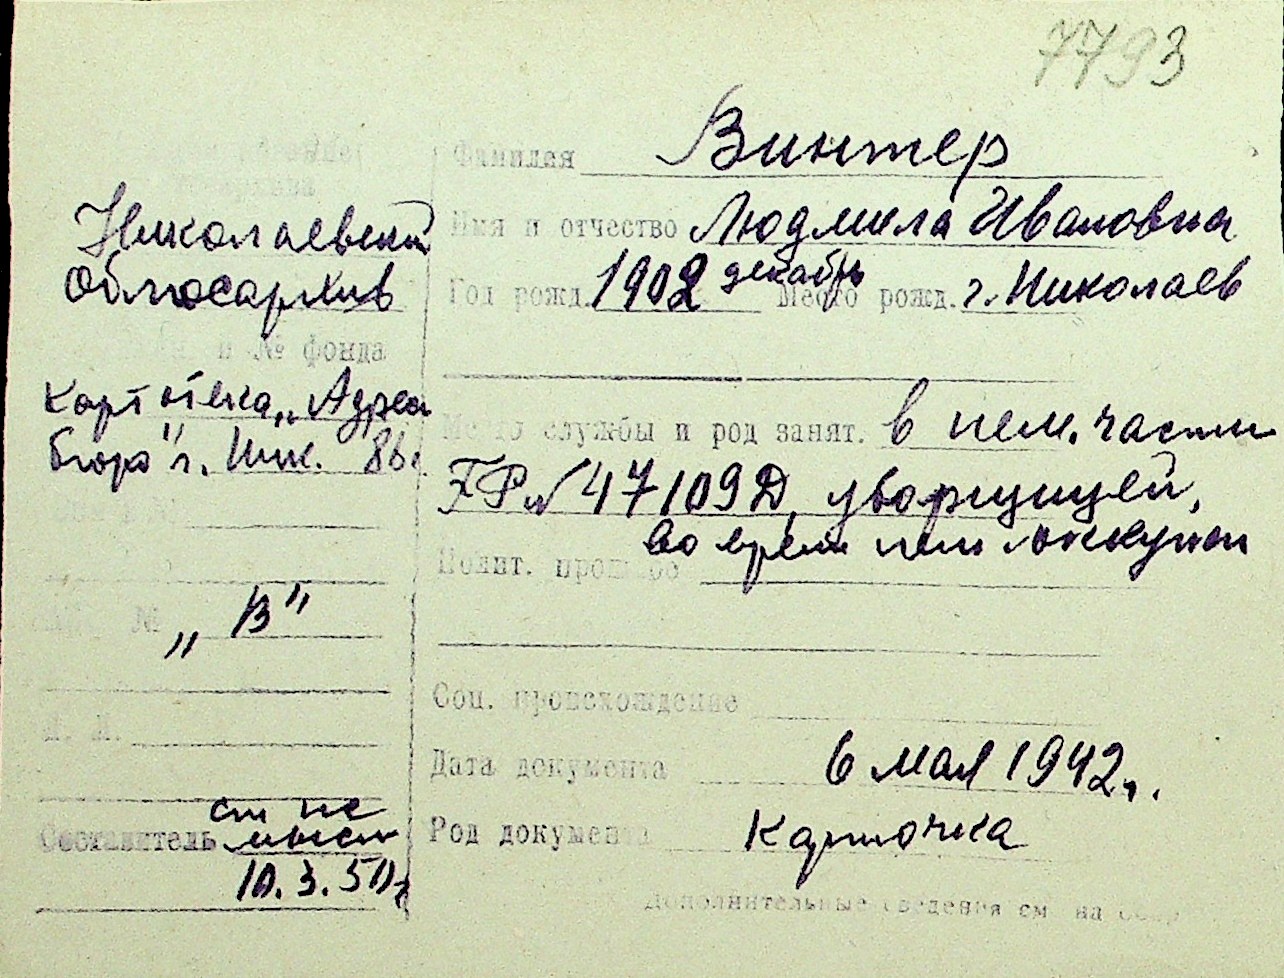 7793
Николаевский
Облгосархив
и № фонда
картотека „Адрес
бюро" г. Ник.
№ „В"
Составитель
10.3.50г
Фамилия Винтер
Имя и отчество Людмила Ивановна
Год рожд. 1902 декабрь Место рожд. г. Николаев
Место службы и род занят. в нем. части
№ 47109Д, уборщицей,
во время нем оккупац
Полит. прошлое
Соц. происхождение
Дата документа 6 мая 1942 г.
Род документа Карточка
Дополнительные сведения см на обор